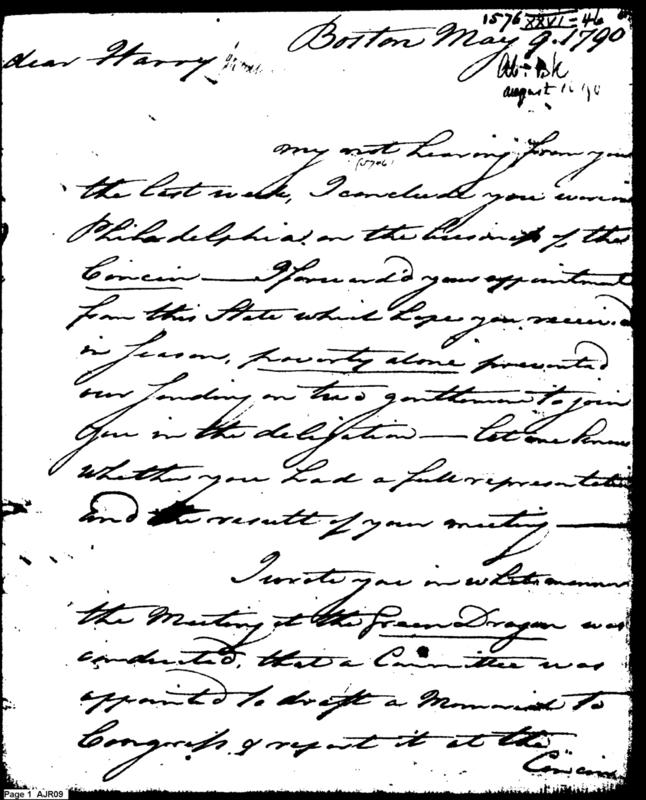 1576 XXVI-46
Boston May 9. 1790
dear Harry
august 1790
my not hearing from you
(5706)
the last week, I conclude you were in
Philadelphia on the business of the
Cincin — I forward'd your appointment
from this State which hope you received
in season, poverty alone prevented
our sending on two gentlemen to join
you in the deligation — let me know
whether you had a full representation
and the result of your meeting —
I wrote you in what manner
the Meeting at the Green Dragon was
conducted, that a Committee was
appointed to draft a Memorial to
Congress & report it at the
Cincin
Page 1 AJR09